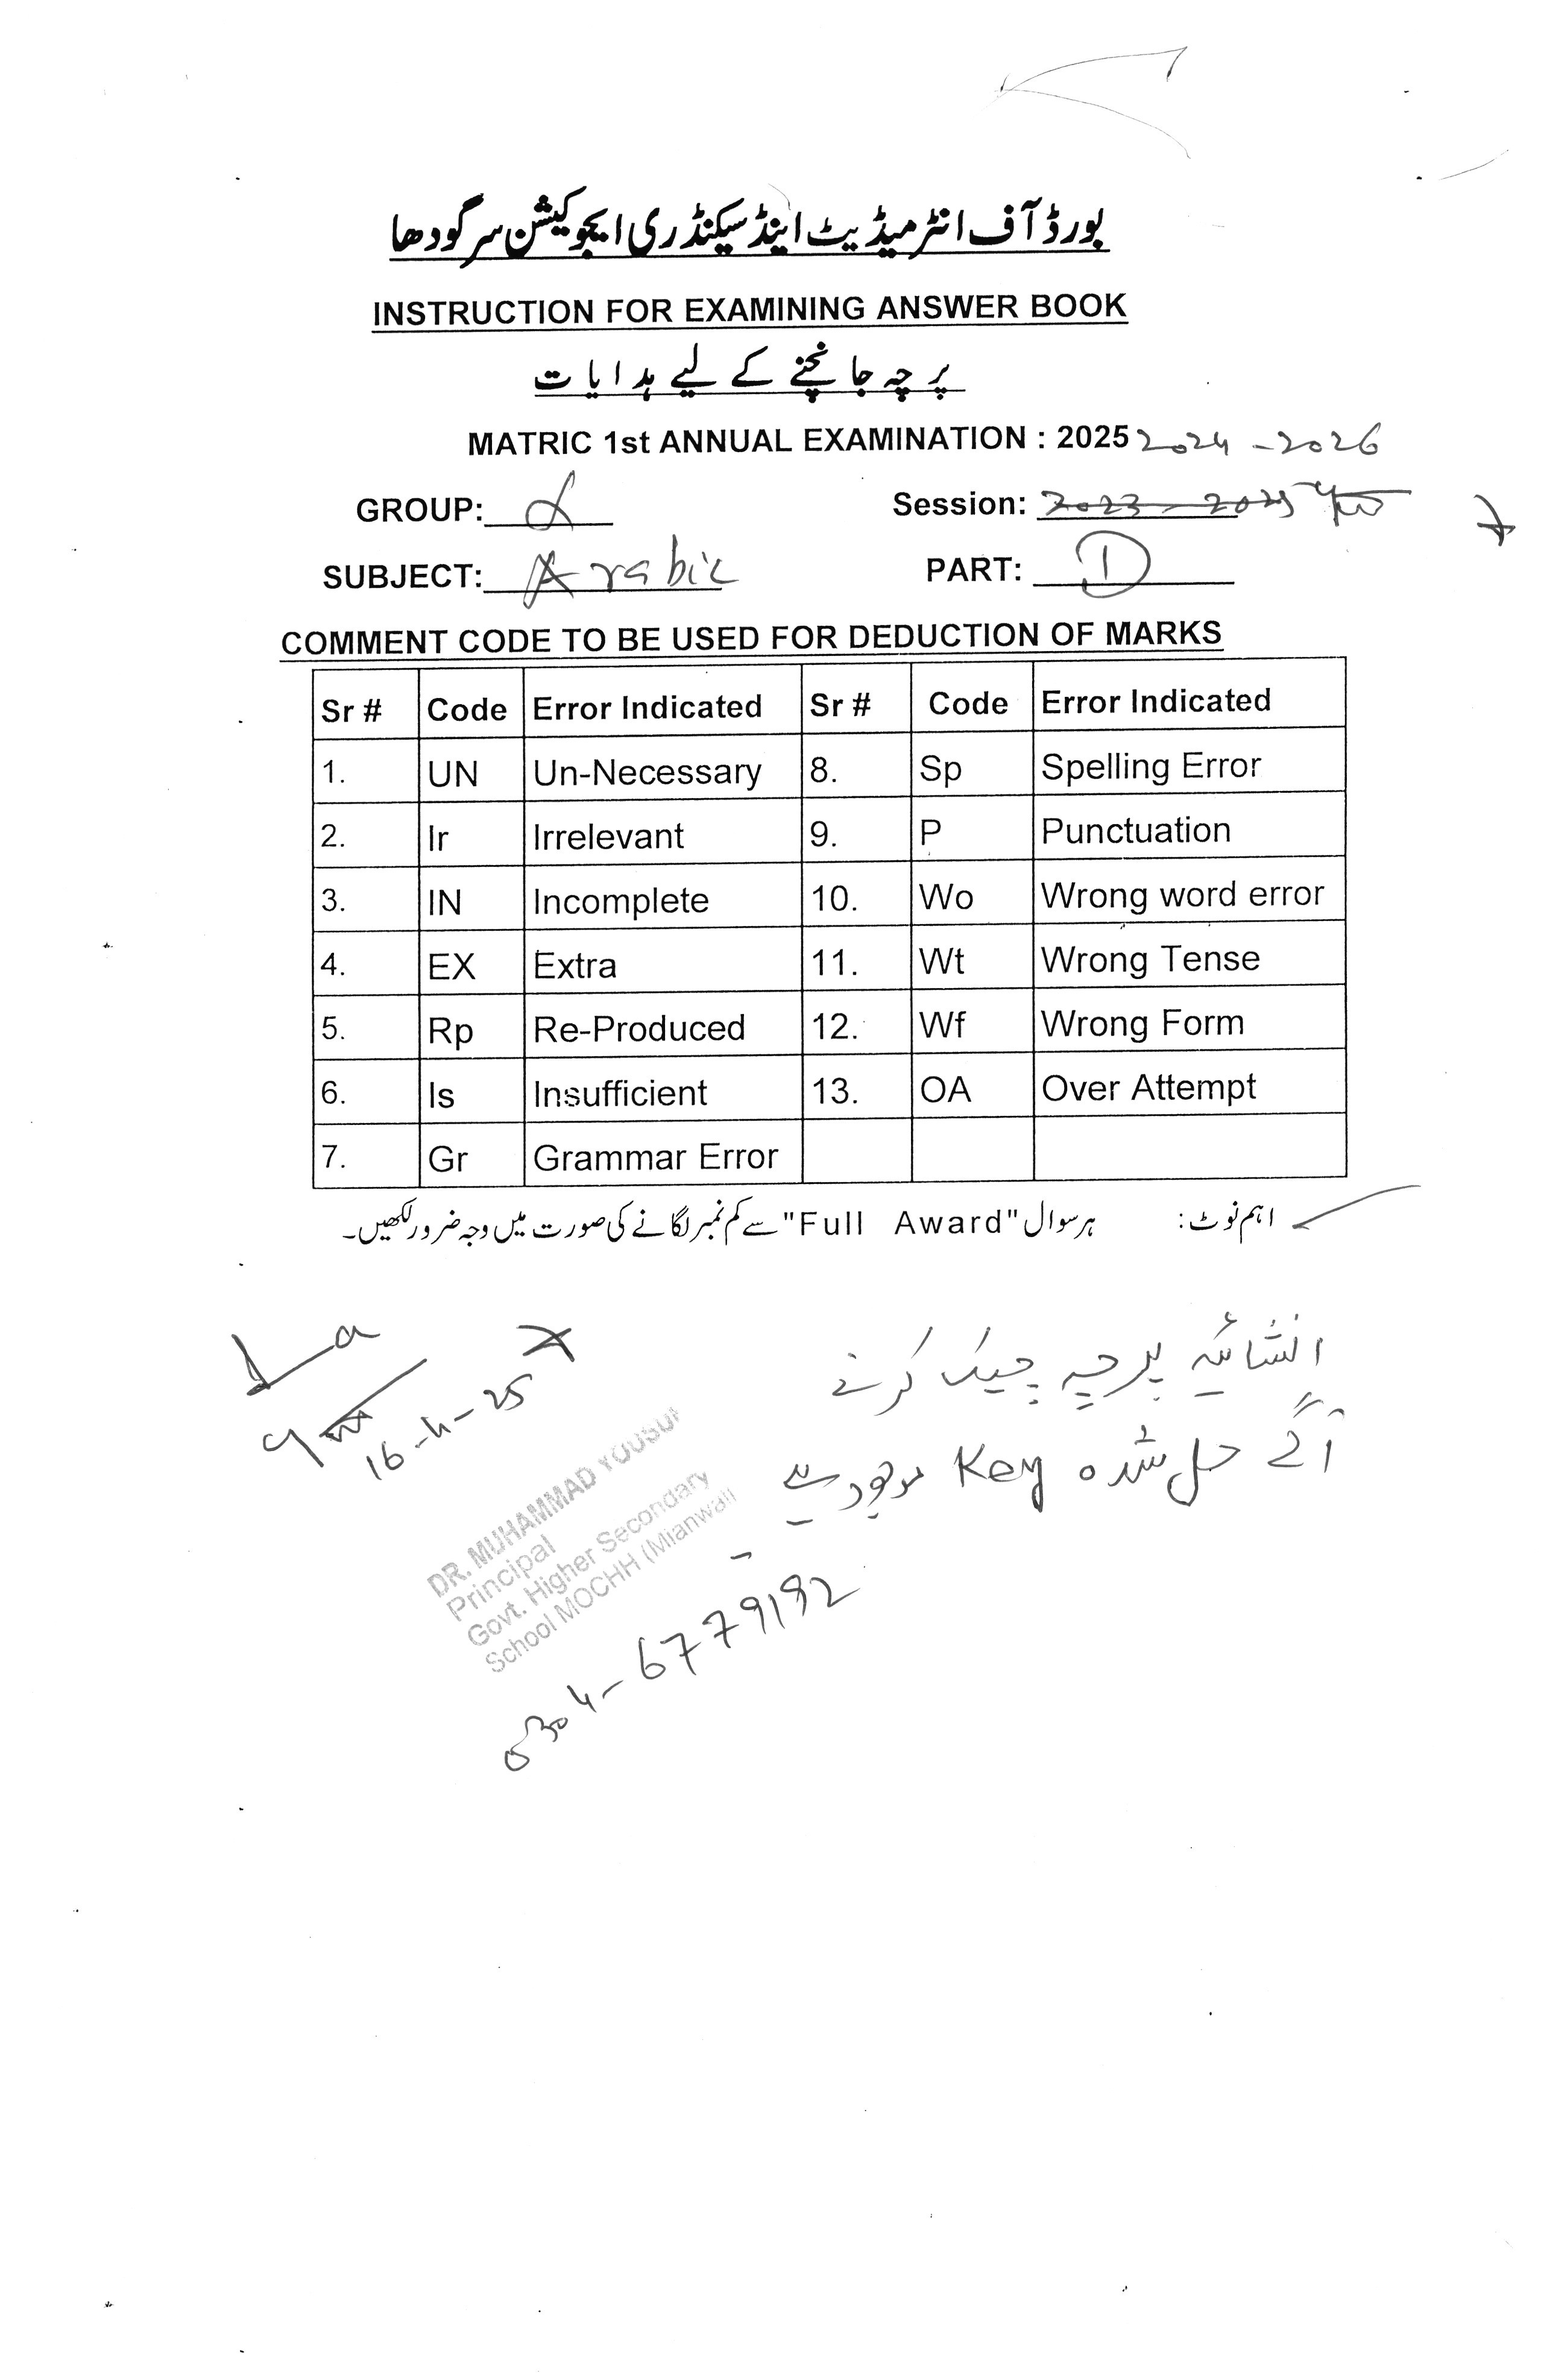 بورڈ آف انٹرمیڈیٹ اینڈ سیکنڈری ایجوکیشن سرگودھا
INSTRUCTION FOR EXAMINING ANSWER BOOK
پرچہ جانچنے کے لیے ہدایات
MATRIC 1st ANNUAL EXAMINATION : 2025 2024 - 2026
GROUP: Session: 2023 - 2025
SUBJECT: Arabic PART:
COMMENT CODE TO BE USED FOR DEDUCTION OF MARKS
Sr # Code Error Indicated Sr # Code Error Indicated
1. UN Un-Necessary 8. Sp Spelling Error
2. Ir Irrelevant 9. P Punctuation
3. IN Incomplete 10. Wo Wrong word error
4. EX Extra 11. Wt Wrong Tense
5. Rp Re-Produced 12. Wf Wrong Form
6. Is Insufficient 13. OA Over Attempt
7. Gr Grammar Error
اہم نوٹ: ہر سوال "Full Award" سے کم نمبر لگانے کی صورت میں وجہ ضرور لکھیں۔
انشائیہ پرچہ چیک کرنے
آگے حل شدہ Key موجود ہے
16-4-25
DR. MUHAMMAD YOUSUF
Principal
Govt. Higher Secondary
School MOCHH (Mianwali
0304-6779192